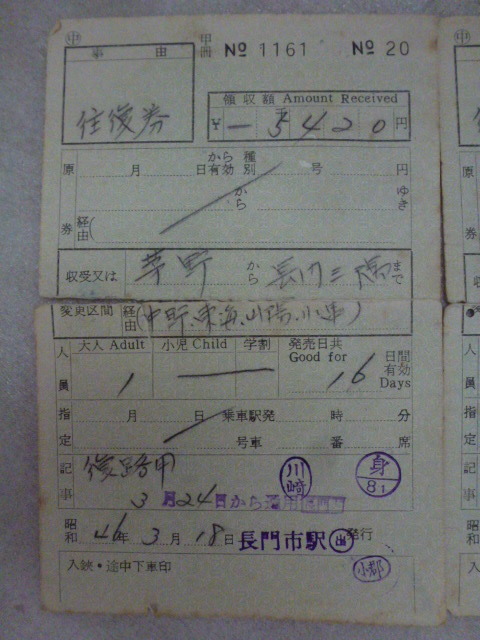 甲冊 No 1161 No 20
事由
往復券
領収額 Amount Received
¥ 5420円
原券
月 日から有効
種別 号 円
から ゆき
経由(
収受又は
変更区間
茅野から長門三隅まで
経由
大人 Adult 小児 Child 学割 発売日共 Good for 日間有効 Days
人員
1 16
指定
月 日 乗車駅発 時 分
号車 番 席
記事
復路甲
川崎
身 81
3月24日から適用
昭和 46年3月18日 長門市駅 出 発行
入鋏・途中下車印
小郡